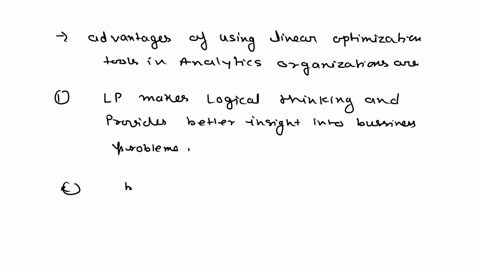 → advantages of using linear optimization
tools in Analytics organizations are
① LP makes Logical thinking and
Provides better insight into bussiness
probleme.
② h